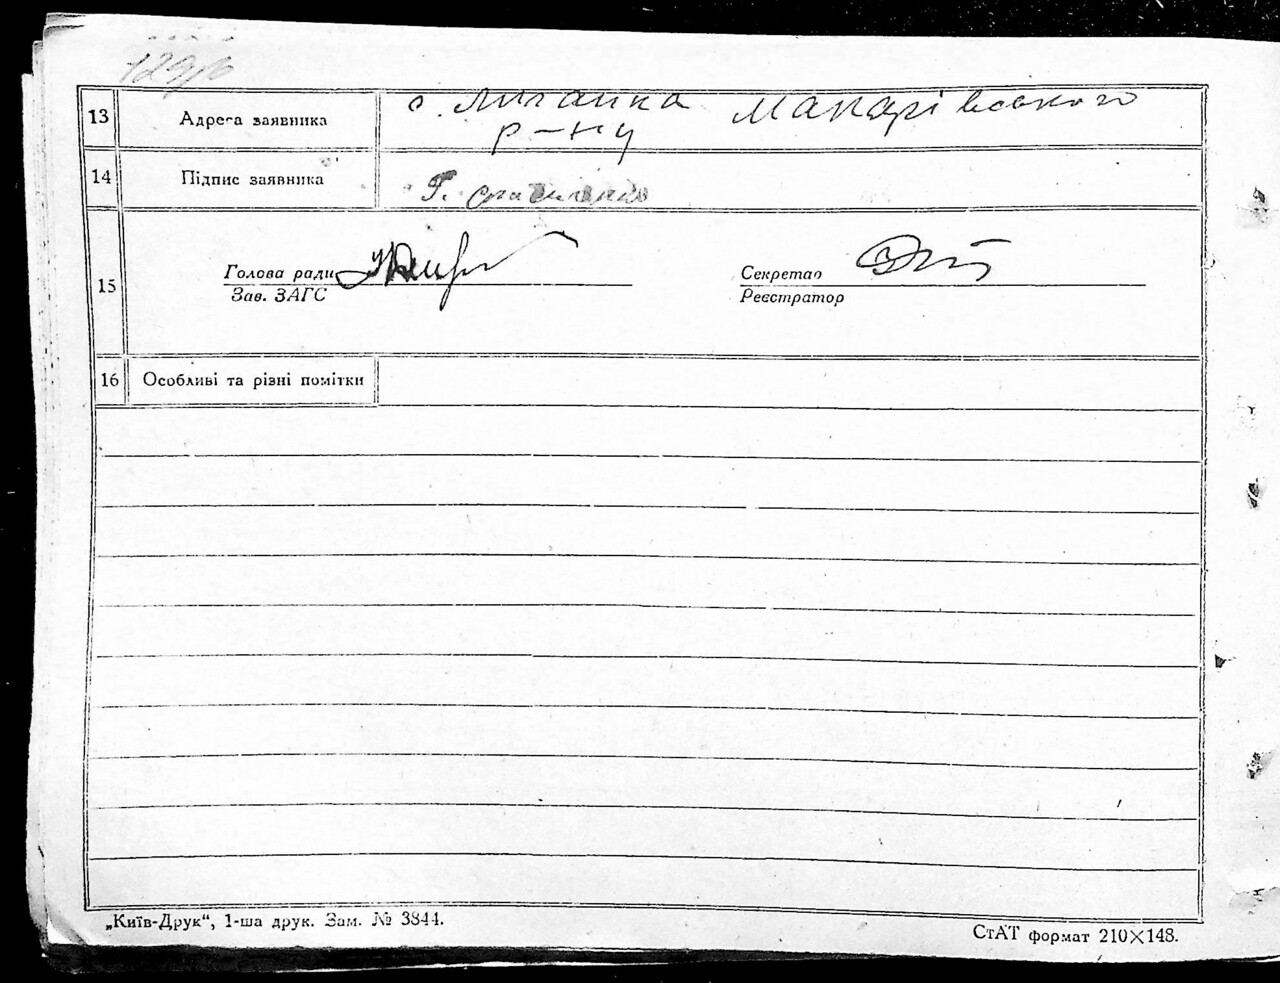 13 Адреса заявника с. Личанка Макарівського
р-ну
14 Підпис заявника Г.
15 Голова ради Секретар
Зав. ЗАГС Реєстратор
16 Особливі та різні помітки
„Київ-Друк“, 1-ша друк. Зам. № 3844.
СтАТ формат 210×148.